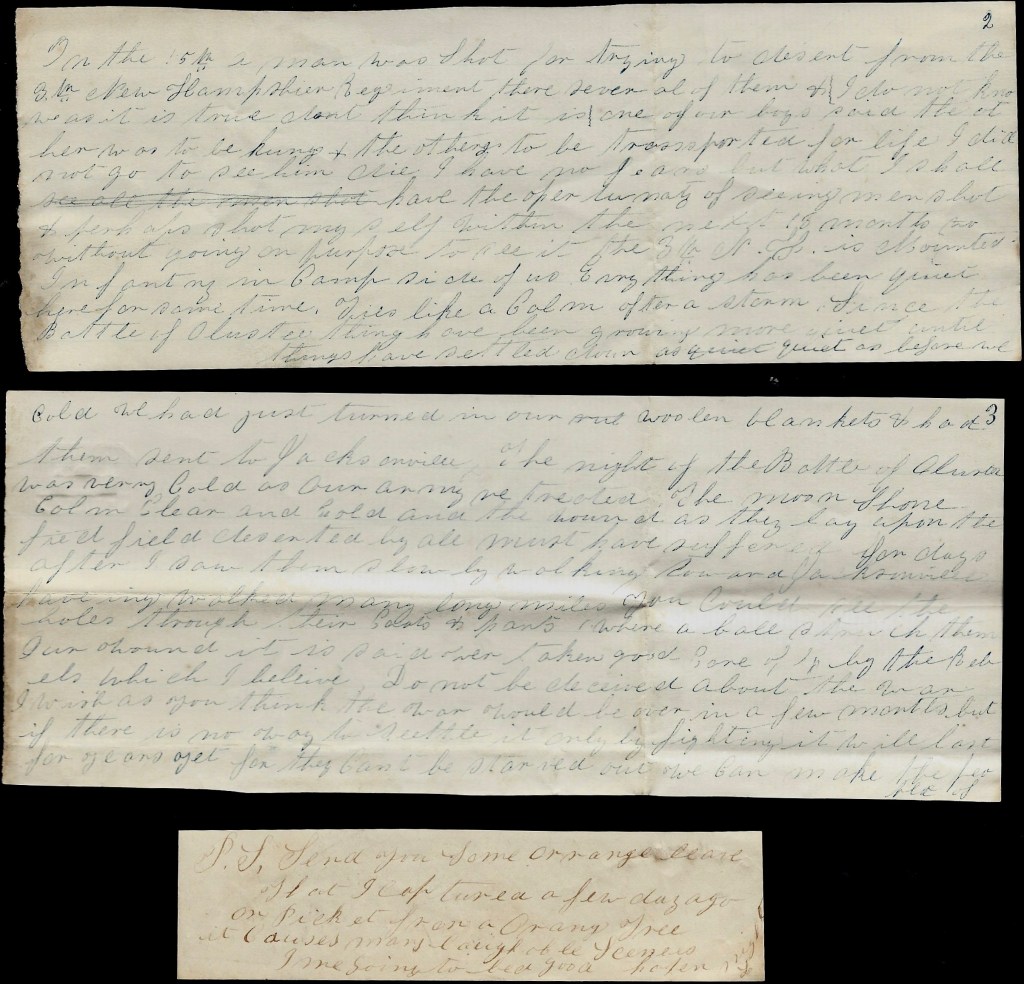 2
In the 15th a man was Shot for trying to desert from the
3th New Hampshier Regiment there sever al of them & I do not kno
weas it is true dont think it is one of our boys said the ot
her was to be hung & the others to be transported for life I did
not go to see him die I have no fears but what I shall
see all the men shot have the oper tunaty of seeing men shot
& perhaps shot my self within the next 13 months
without going on purpose to see it the 3th N. H. is Mounted
Infantry in Camp side of us Evry thing has been quiet
here for some time. Tis like a Calm after a storm Since the
Battle of Olustee thing have been growing more quiet until
things have settled down as quiet quiet as before we
3
Cold We had just turned in our woolen blankets & had
them sent to Jacksonville, The night of the Battle of
was verry Cold as our army retreated The moon Shone
Calm Clear and Cold and the wound as they lay upon the
field deserted by all must have suffered for days
after I saw them slowly walking toward Jacksonville
haveing walked many long miles you Could see the
holes through their Coats & pants where a ball struck them
Our wound it is said were taken good Care of by the Reb
els which I beleive Do not be deceived about the war
I wish as you think the war would be over in a few months but
if there is no way to settle it only by fighting it will last
for years yet for they Cant be starved out we Can make the
ple of
P. S, Send you Some orrange leave
that I captured a few daz ago
on Picket from a Orang Tree
it Causes many laughable Sceenes
I me going to bed good